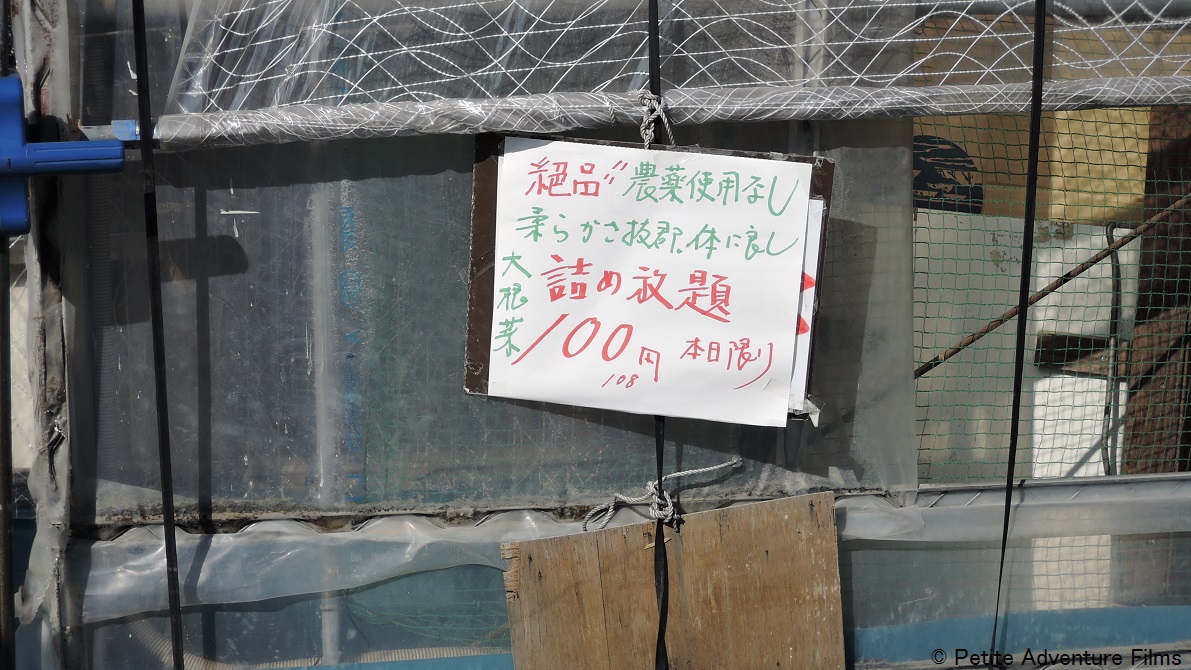 絶品〃農薬使用なし
柔らかさ抜群、体に良し
大根菜
詰め放題
100円 本日限り
108
© Petite Adventure Films